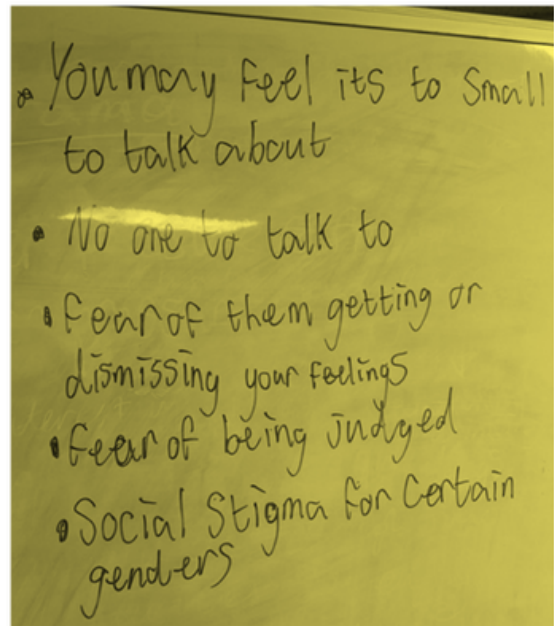 • You may feel its to small
to talk about
• No one to talk to
• fear of them getting or
dismissing your feelings
• fear of being judged
• Social Stigma for certain
genders